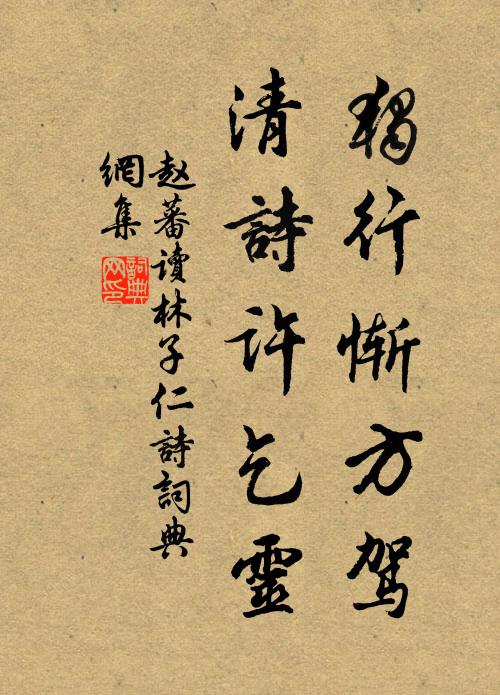 獨行慚方驾
清詩許乞靈
赵蕃读林子仁詩詞典
網集
詞典网印